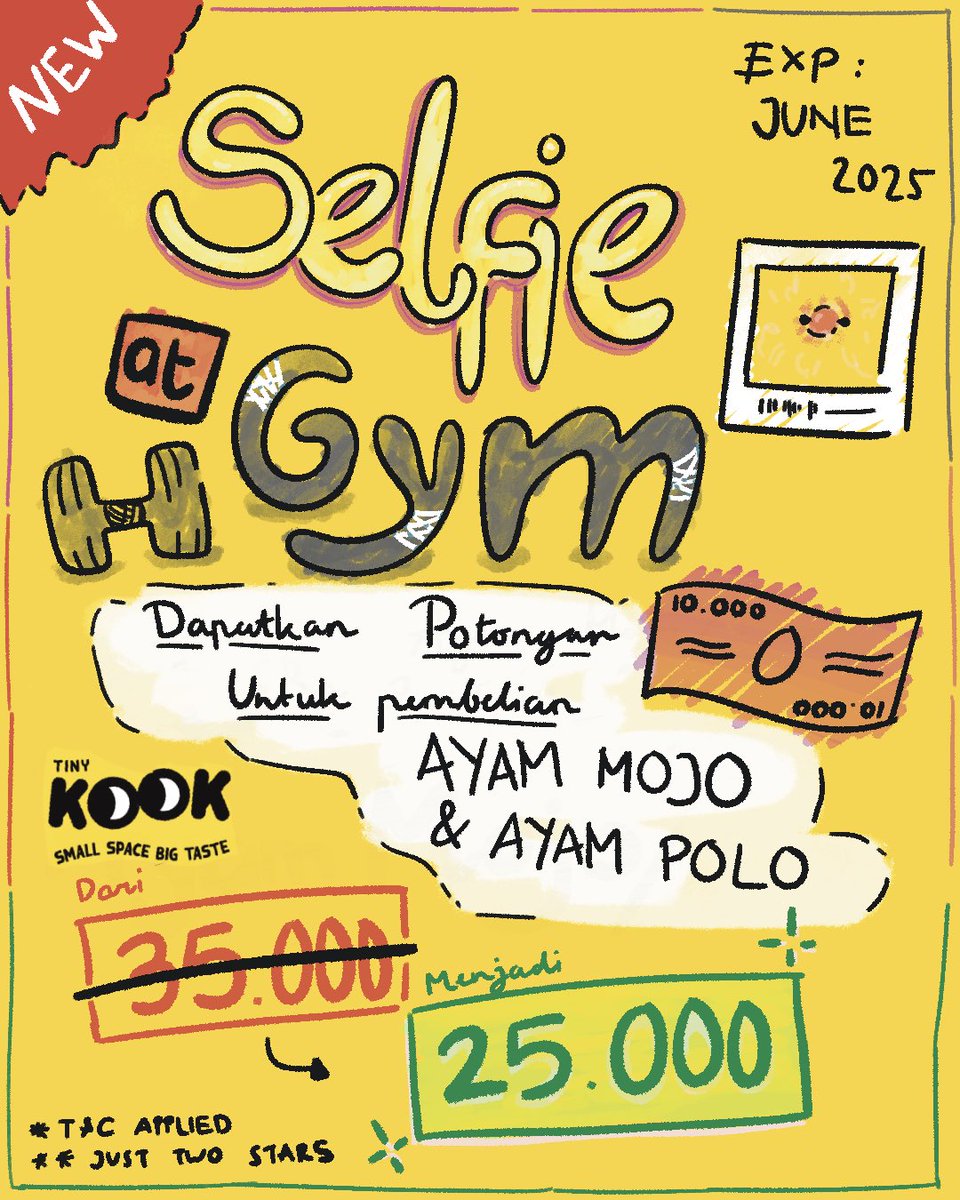 NEW
EXP :
JUNE
2025
Selfie
at
Gym
Dapatkan Potongan
Untuk pembelian
AYAM MOJO
& AYAM POLO
10.000
0
10.000
TINY
KOOK
SMALL SPACE BIG TASTE
Dari
35.000
Menjadi
25.000
* T&C APPLIED
** JUST TWO STARS